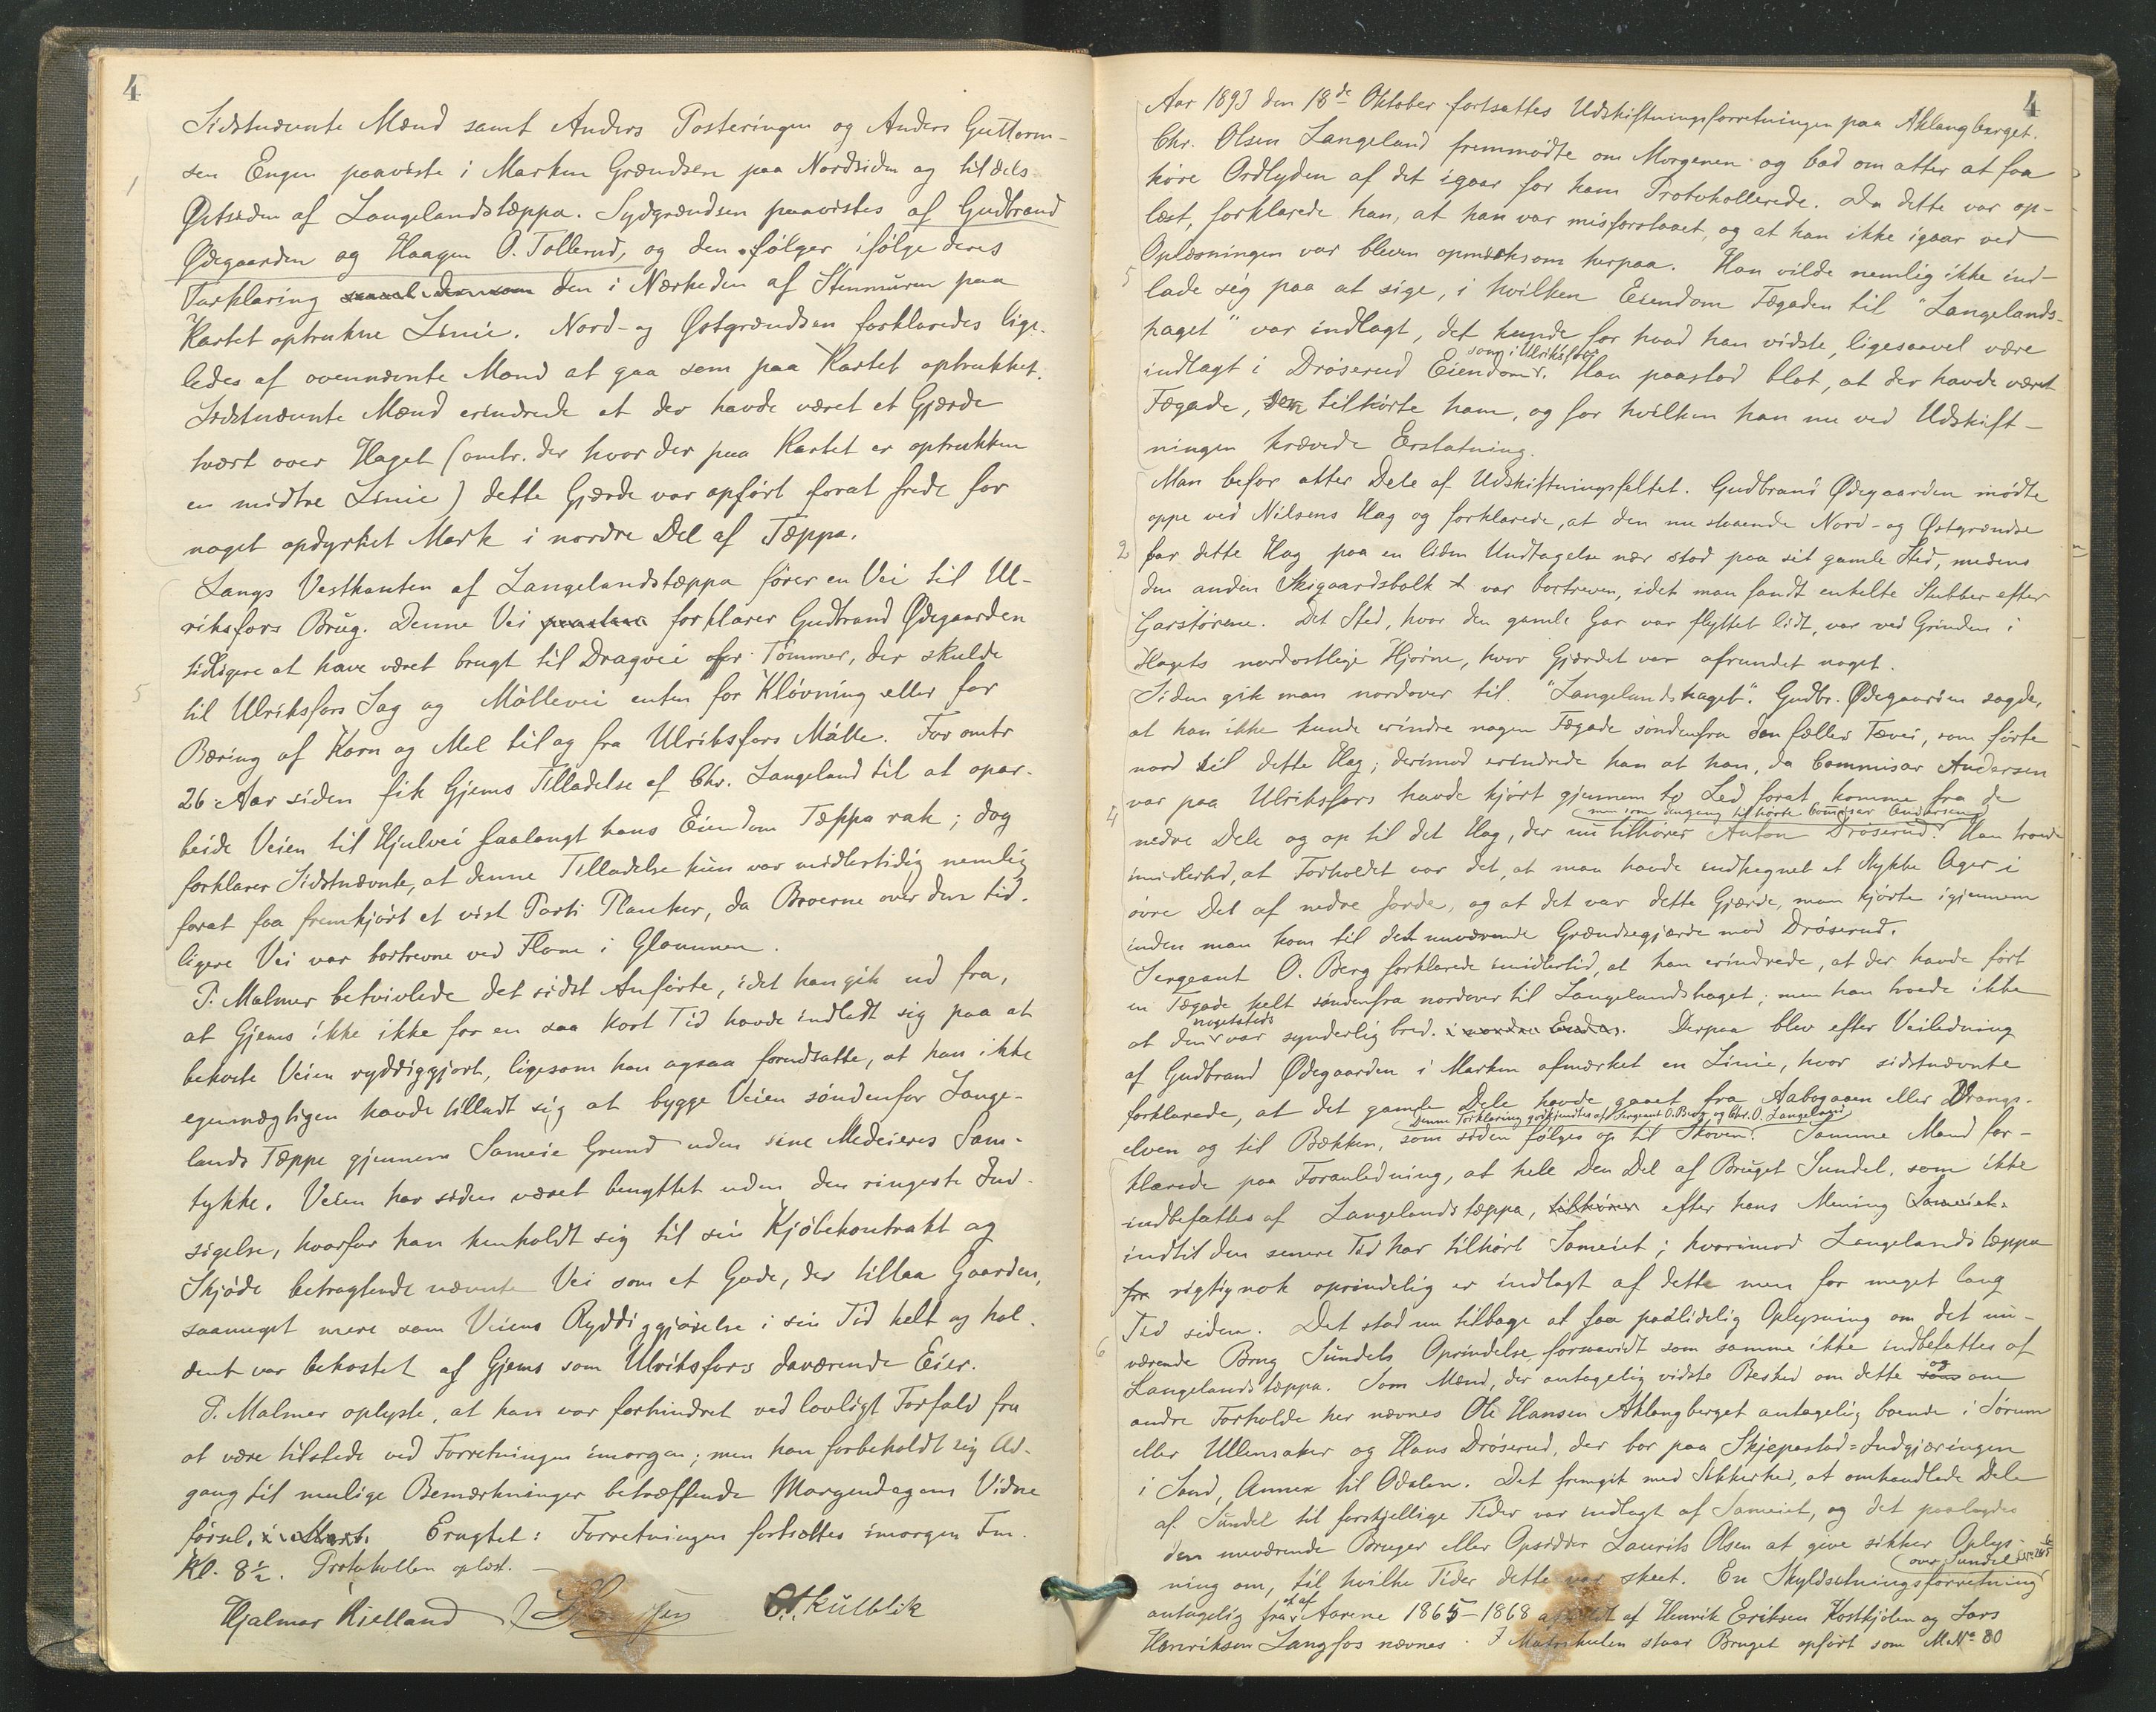 4
Sidstnævnte Mænd samt Anders Posteringen og Anders Guttorm-
sen Engen paaviste i Marken Grændsen paa Nordsiden og tildels
1
Østsiden af Langelandstæppa. Sydgrændsen paavistes af Gudbrand
Ødegaarden og Haagen O. Tollerud, og den følger ifølge deres
Forklaring den i Nærheden af Stenmuren paa
Kartet optrukne Linie. Nord- og Østgrændsen forklaredes lige-
ledes af ovennævnte Mænd at gaa som paa Kartet optrukket.
Sidstnævnte Mænd erindrede at der havde været et Gjærde
tvært over Haget (omtr. der hvor der paa Kartet er optrukken
en midtre Linie) dette Gjærde var opført forat frede for
noget opdyrket Mark i nordre Del af Tæppa.
Langs Vestkanten af Langelandstæppa fører en Vei til Ul-
riksfors Brug. Denne Vei forklarer Gudbrand Ødegaarden
tidligere at have været brugt til Dragvei for Tømmer, der skulde
5
til Ulriksfors Sag og Møllevei enten for Kløvning eller for
Bæring af Korn og Mel til og fra Ulriksfors Mølle. For omtr
26 Aar siden fik Gjems Tilladelse af Chr. Langeland til at opar-
beide Veien til Hjulvei saalangt hans Eiendom Tæppa rak; dog
forklarer Sidstnævnte, at denne Tilladelse kun var midlertidig nemlig
forat faa fremkjørt et vist Parti Planker, da Broerne over den tid-
ligere Vei var bortrevne ved Flom i Glommen.
P. Malmer betvivlede det sidst Anførte, idet han gik ud fra,
at Gjems ikke ikke for en saa kort Tid havde indladt sig paa at
bekoste Veien ryddiggjort, ligesom han ogsaa forudsatte, at han ikke
egenmægtigen havde tilladt sig at bygge Veien søndenfor Lange-
lands Tæppe gjennem Sameie Grund uden sine Medeieres Sam-
tykke. Veien har siden været benyttet uden den ringeste Ind-
sigelse, hvorfor han henholdt sig til sin Kjøbekontrakt og
Skjøde betragtende nævnte Vei som et Gode, der tillaa Gaarden,
saameget mere som Veiens Ryddiggjørelse i sin Tid helt og hol-
dent var bekostet af Gjems som Ulriksfors daværende Eier.
P. Malmer oplyste, at han var forhindret ved lovligt Forfald fra
at være tilstede ved Forretningen imorgen; men han forbeholdt sig Ad-
gang til mulige Bemærkninger betræffende Morgendagens Vidne
førsel. Eragtet: Forretningen fortsættes imorgen Fm.
Kl. 8½. Protokollen oplæst.
Hjalmar Kielland
4
Aar 1893 den 18de Oktober fortsattes Udskiftningsforretningen paa Aklangberget.
Chr. Olsen Langeland fremmødte om Morgenen og bad om atter at faa
høre Ordlyden af det igaar for ham Protokollerede. Da dette var op-
læst, forklarede han, at han var misforstaaet, og at han ikke igaar ved
Oplæsningen var bleven opmærksom herpaa. Han vilde nemlig ikke ind-
5
lade sig paa at sige, i hvilken Eiendom Fægaden til "Langelands-
haget" var indlagt, det kunde for hvad han vidste, ligesaavel være
som i Ulriksfors
indlagt i Drøserud Eiendom. Han paastod blot, at der havde været
Fægade, der tilhørte ham, og for hvilken han nu ved Udskift-
ningen krævede Erstatning.
Man befor atter Dele af Udskiftningsfeltet. Gudbrand Ødegaarden mødte
oppe ved Nilsens Hag og forklarede, at den nu staaende Nord- og Østgrændse
2
for dette Hag paa en liden Undtagelse nær stod paa sit gamle Sted, medens
den anden Skigaardsbolk var bortreven, idet man fandt enkelte Stubber efter
Garstørene. Det Sted, hvor den gamle Gar var flyttet lidt, var ved Grinden i
Hagets nordostlige Hjørne, hvor Gjærdet var afrundet noget.
Siden gik man nordover til "Langelandshaget". Gudbr. Ødegaarden sagde,
at han ikke kunde erindre nogen Fægade søndenfra den fælles Fævei, som førte
nord til dette Hag; derimod erindrede han at han, da Commisær Andersen
var paa Ulriksfors havde kjørt gjennem to Led forat komme fra de
4
men som dengang tilhørte Comisær Andersen
nedre Dele og op til det Hag, der nu tilhører Anton Drøserud. Han troede
imidlertid, at Forholdet var det, at man havde indhegnet et Stykke Ager i
øvre Del af nedre Jorde, og at det var dette Gjærde, man kjørte igjennem
inden man kom til det nuværende Grændsegjærde mod Drøserud.
Sergeant O. Berg forklarede imidlertid, at han erindrede, at der havde ført
en Fægade helt søndenfra nordover til Langelandshaget; men han troede ikke
nogetsteds
at den var synderlig bred. Derpaa blev efter Veiledning
af Gudbrand Ødegaarden i Marken afmærket en Linie, hvor sidstnævnte
forklarede, at det gamle Dele havde gaaet fra Aabogaaen eller Drangs-
Denne Forklaring godkjendtes af Sergeant O. Berg og Chr. O. Langeland
elven og til Bækken, som siden følges op til Skoven. Samme Mand for-
klarede paa Foranledning, at hele den Del af Bruget Sundel, som ikke
indbefattes af Langelandstæppa, tilhører efter hans Mening Sameiet.
indtil den senere Tid har tilhørt Sameiet; hvorimod Langelandstæppa
for rigtignok oprindelig er indlagt af dette men for meget lang
Tid siden. Det stod nu tilbage at faa paalidelig Oplysning om det nu-
6
værende Brug Sundels Oprindelse, forsaavidt som samme ikke indbefattes af
og
Langelandstæppa. Som Mænd, der antagelig vidste Besked om dette som om
andre Forholde her nævnes Ole Hansen Aklangberget antagelig boende i Sørum
eller Ullensaker og Hans Drøserud, der bor paa Skjepestad-Indgjæringen
i Sand, Annex til Odalen. Det fremgik med Sikkerhed, at omhandlede Dele
af Sundel til forskjellige Tider var indlagt af Sameiet, og det paalagdes
den nuværende Bruger eller Opsidder Laurits Olsen at give sikker Oplys-
over Sundel
ning om, til hvilke Tider dette var skeet. En Skyldsætningsforretning
antagelig fra Aarene 1865-1868 afholdt af Henrik Eriksen Kostkjølen og Lars
Henriksen Langfos nævnes. I Matrikulen staar Bruget opført som M.No 80